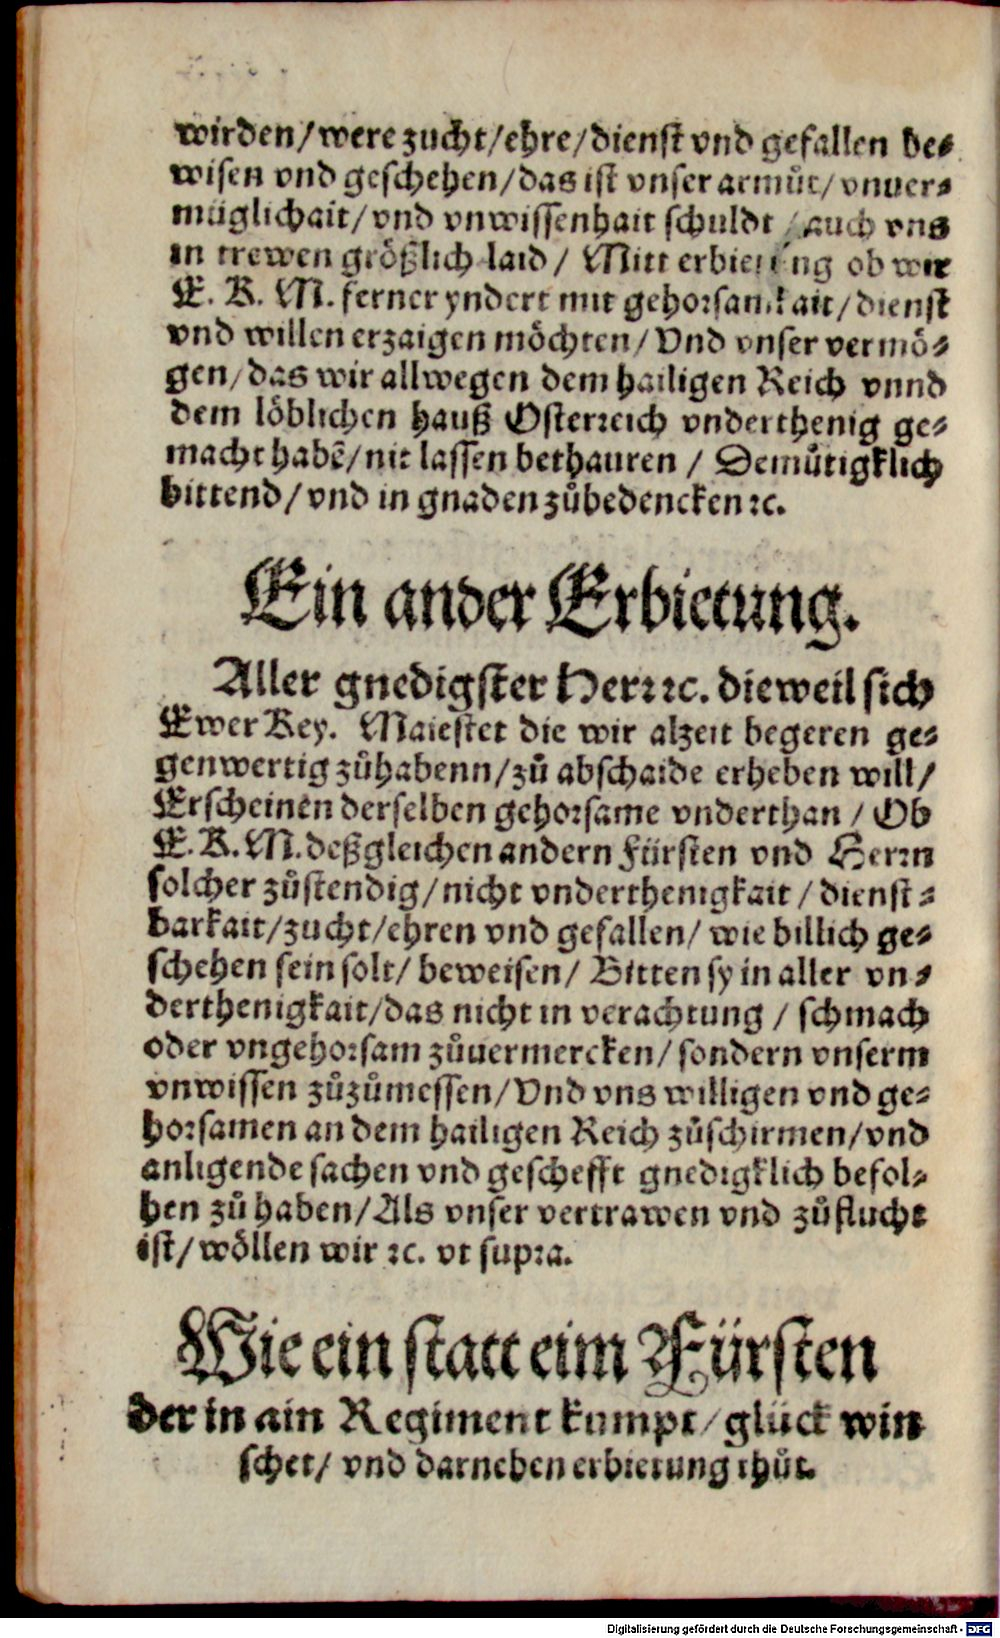 wirden/were zucht/ehre/dienst vnd gefallen be⸗
wisen vnd geschehen/das ist vnser armůt/vnuer⸗
müglichait/vnd vnwissenhait schuldt/auch vns
in trewen größlich laid/Mitt erbietung ob wir
E. K. M. ferner yndert mit gehorsamkait/dienst
vnd willen erzaigen möchten/Vnd vnser vermö⸗
gen/das wir allwegen dem hailigen Reich vnnd
dem löblichen hauß Osterreich vnderthenig ge⸗
macht habẽ/nit lassen bethauren/Demůtigklich
bittend/vnd in gnaden zůbedencken ꝛc.
Ein ander Erbietung.
Aller gnedigster Herr ꝛc. dieweil sich
Ewer Key. Maiestet die wir alzeit begeren ge⸗
genwertig zůhabenn/zů abschaide erheben will/
Erscheinen derselben gehorsame vnderthan/Ob
E. K. M. deßgleichen andern Fürsten vnd Herrn
solcher zůstendig/nicht vnderthenigkait/dienst⸗
barkait/zucht/ehren vnd gefallen/wie billich ge⸗
schehen sein solt/beweisen/Bitten sy in aller vn⸗
derthenigkait/das nicht in verachtung/schmach
oder vngehorsam zůuermercken/sondern vnserm
vnwissen zůzůmessen/Vnd vns willigen vnd ge⸗
horsamen an dem hailigen Reich zůschirmen/vnd
anligende sachen vnd geschefft gnedigklich befol⸗
hen zů haben/Als vnser vertrawen vnd zůflucht
ist/wöllen wir ꝛc. vt supra.
Wie ein statt eim Fürsten
der in ain Regiment kumpt/glück win
schet/vnd darneben erbietung thůt.
Digitalisierung gefördert durch die Deutsche Forschungsgemeinschaft - DFG